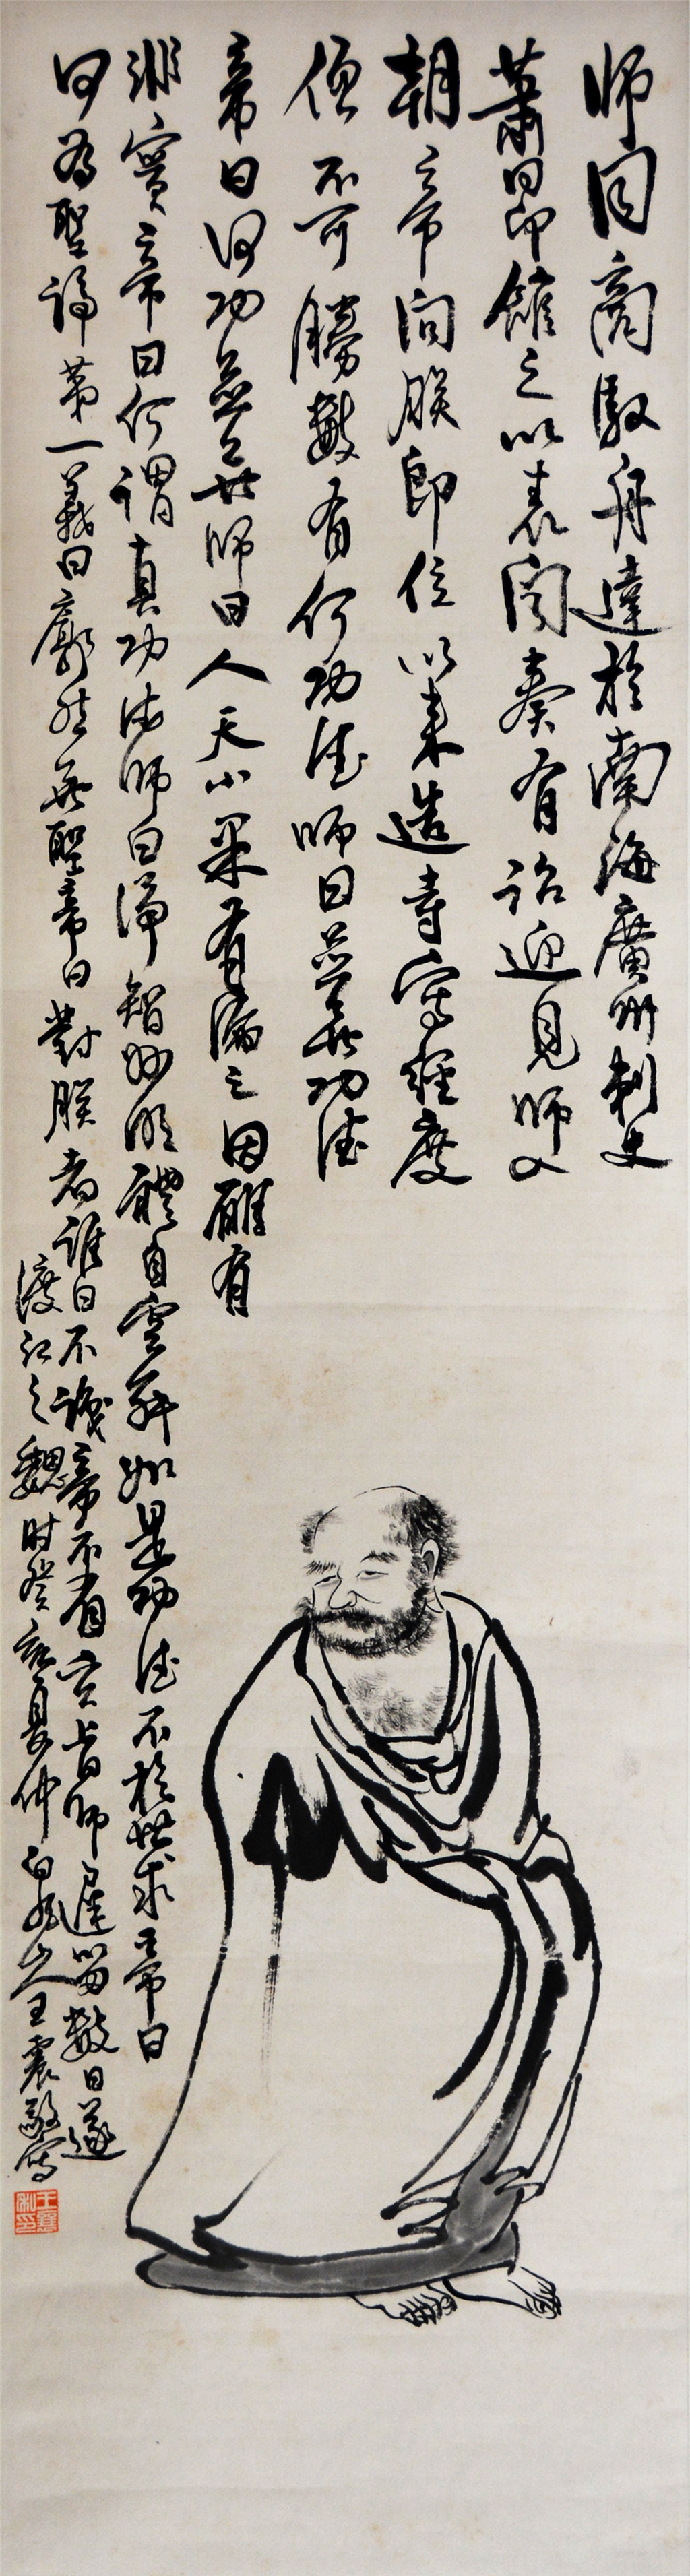 師同商駁舟達於南海廣州刺史
蕭昂館之以表聞奏有詔迎見師入
朝帝問朕即位以來造寺寫經度
僧不可勝數有何功德師曰並無功德
帝曰何功並無師曰人天小果有漏之因雖有
非實帝曰何謂真功法師曰淨智妙明體自空寂如是功德不於世求帝曰
何為聖諦第一義曰廓然無聖帝曰對朕者誰曰不識帝不省玄旨師遲留數日遂
渡江之魏時癸亥夏仲白龍山人王震敬寫